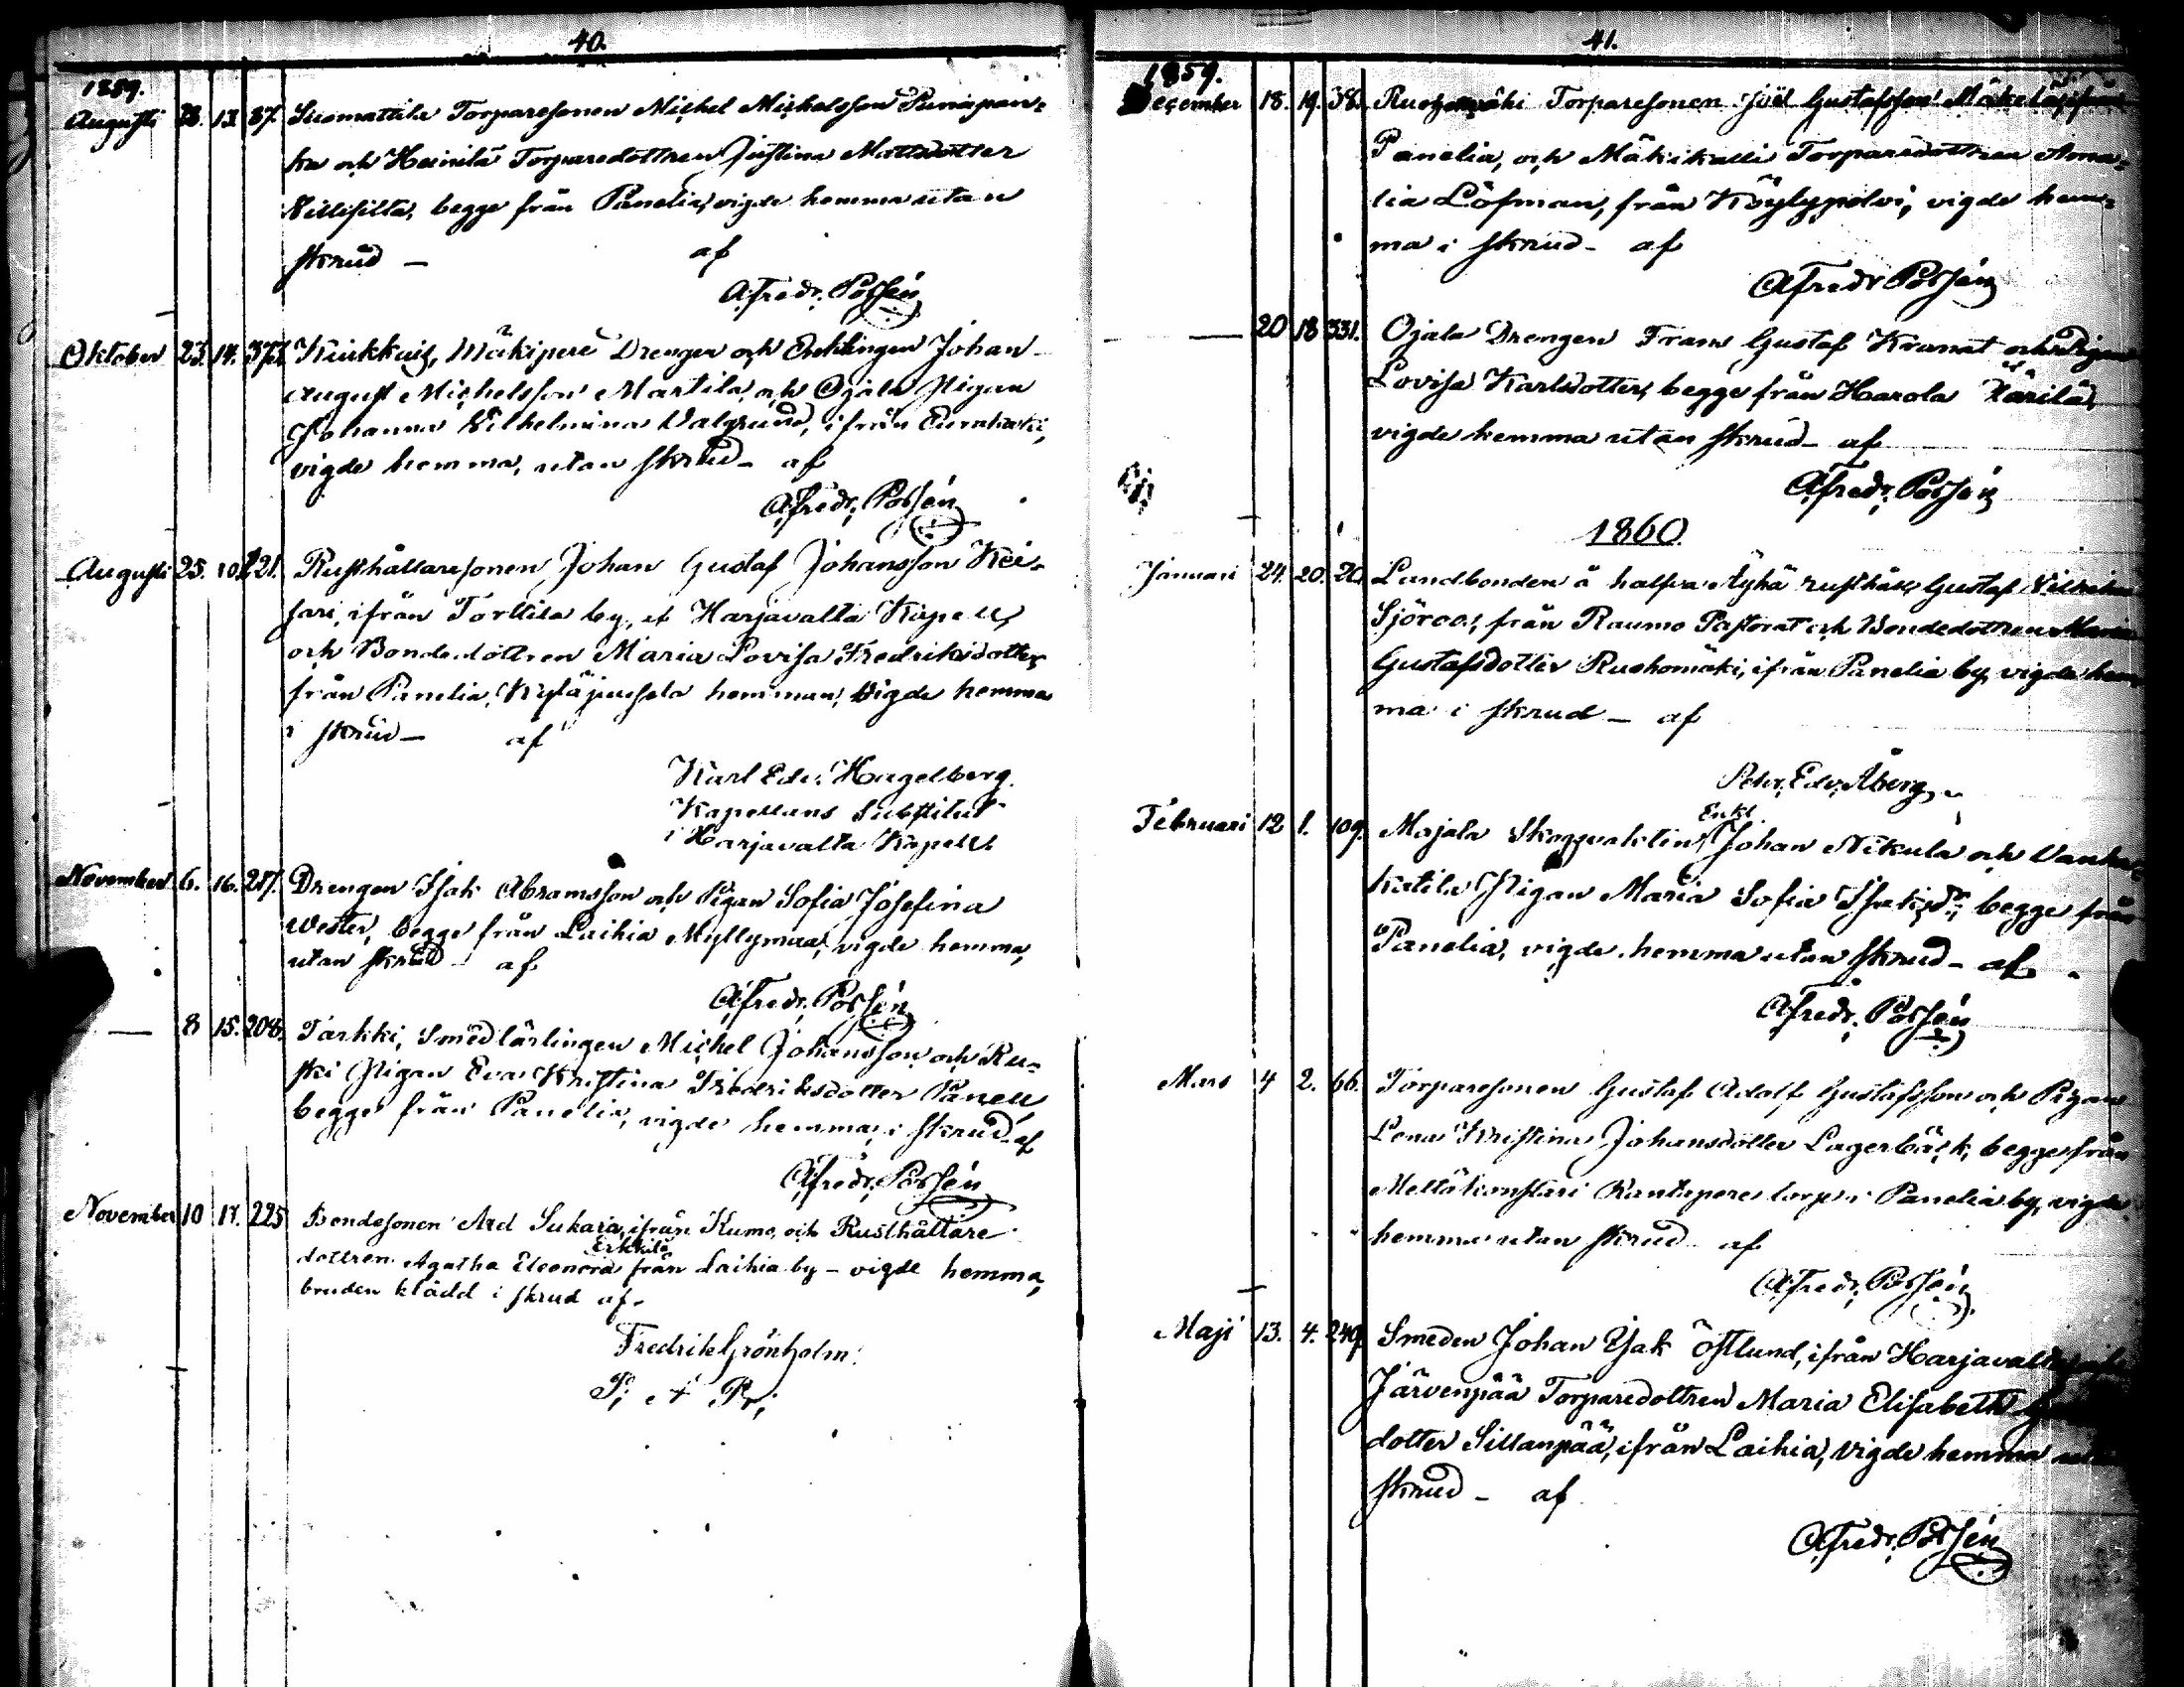 40.
1859.
Augusti 28. 13. 87. Suomattila Torparesonen Michel Michelsson Punapan-
ka och Heinilä Torparedottren Justina Mattsdotter
Villisilta, begge från Panelia, vigde hemma utan
skrud — af
A. Fredr. Possén
Oktober 23. 14. Kuukkuis, Mäkiperé Drengen och Enklingen Johan
August Michelsson Martila, och Ojala Pigan
Johanna Vilhelmina Valgrund, ifrån Eurakoski,
vigde hemma, utan skrud — af
A. Fredr. Possén
Augusti 25. 10. 121. Rusthållaresonen Johan Gustaf Johansson Kei-
sari, ifrån Torttila by, af Harjavalta Kapell,
och Bondedottren Maria Lovisa Fredriksdotter
från Panelia, Kyläjuusela hemman, vigde hemma
i skrud — af
Karl Edv. Hagelberg.
Kapellans Substitut
i Harjavalta Kapell.
November 6. 16. 217. Drengen Isak Abramsson och Pigan Sofia Josefina
Wester, begge från Laihia Myllymaa, vigde hemma,
utan skrud — af
A. Fredr. Possén
— 8 15. 208. Tarkki, Smedlärlingen Michel Johansson och Ru-
ski Pigan Eva Kristina Fredriksdotter Panell
begge från Panelia, vigde hemma, i skrud af
A. Fredr. Possén
November 10 17. 225 Bondesonen Axel Sukari, ifrån Kumo, och Rusthållare
Erkkilä
dottren Agatha Eleonora från Laihia by — vigde hemma,
bruden klädd i skrud af.
Fredrik Grönholm.
P. A. Pr.
41.
1859.
December 18. 19. 38. Ruohomäki Torparesonen Joël Gustafsson
Panelia, och Mäkikalli Torparedottren Ama-
lia Löfman, från Köylypolvi, vigde hem-
ma i skrud — af
A. Fredr. Possén
— 20 18 331. Ojala Drengen Frans Gustaf Kranat och Pigan
Lovisa Karlsdotter, begge från Harola
vigde hemma utan skrud — af
A. Fredr. Possén
1860.
Januari 24. 20. 20. Landbonden å halfva Äyhä rusthåll, Gustaf Vilhelm
Sjöroos, från Raumo Pastorat och Bondedottren Maria
Gustafsdotter Ruohomäki, ifrån Panelia by, vigde hem-
ma i skrud — af
Petr. Edv. Åberg
Enkl.
Februari 12 1. 109. Majala Skogvaktin Johan Nikula och Vanha-
katila Pigan Maria Sofia Isaksdr., begge från
Panelia, vigde hemma utan skrud — af
A. Fredr. Possén
Mars 4 2. 66. Torparesonen Gustaf Adolf Gustafsson och Pigan
Lena Kristina Johansdotter Lagerbäck, begge från
Mellåkonstari Rantapere torp i Panelia by, vigde
hemma utan skrud — af
A. Fredr. Possén
Maji 13. 4. 249. Smeden Johan Isak Östlund, ifrån Harjavalta och
Järvenpää Torparedottren Maria Elisabeth
dotter Sillanpää, ifrån Laihia, vigde hemma utan
skrud — af
A. Fredr. Possén